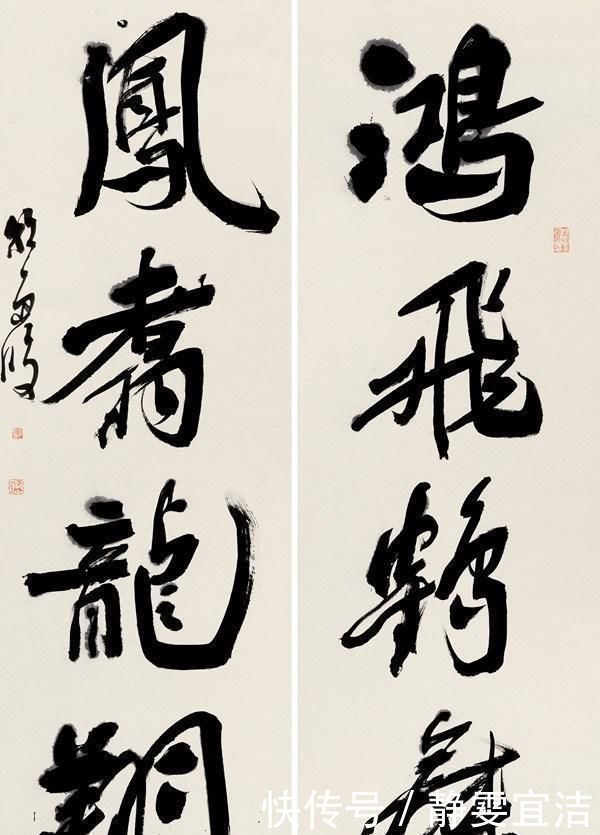 鴻飛鶴舞
鳳翥龍翔
快传号/静雯宜洁